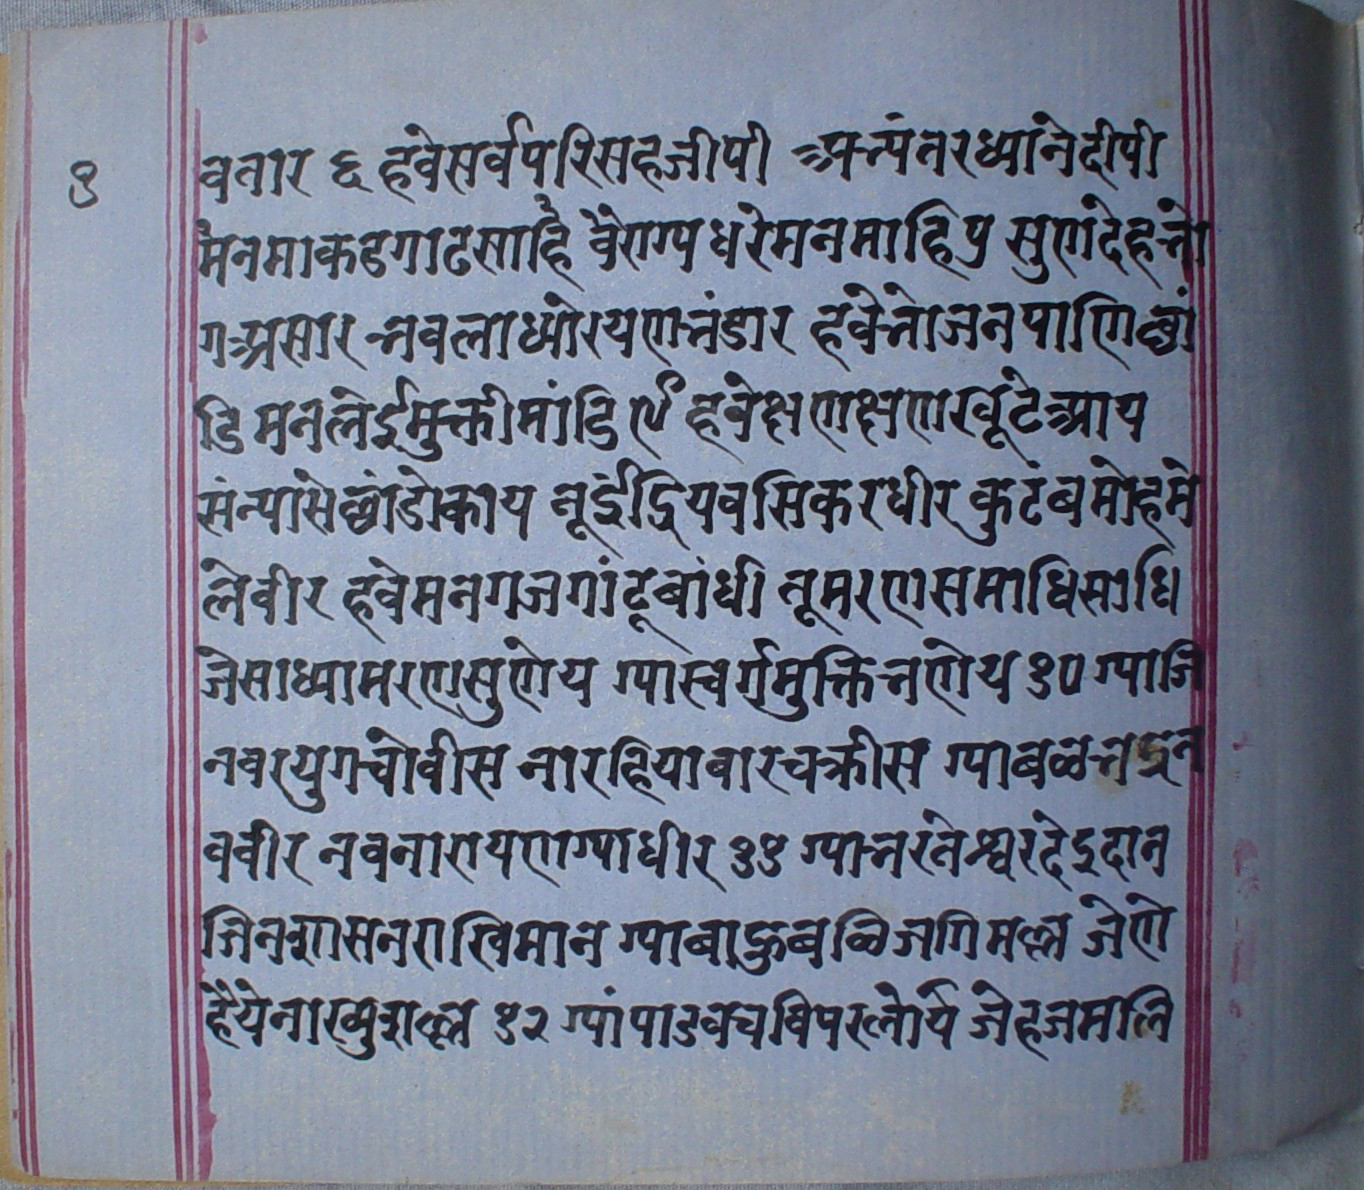 १
वतार ६ हवे सर्व परिसह जीपी अभ्यंतर ध्याने दीपी
मनमाकड गाढ साहि वैराग्य धरे मनमाहि ७ सुण देह भो
ग असार भवला ध्यो रयण भंडार हवे भोजन पाणि छां
डि मन लेई मुक्ती मांडि ८ हवे क्षण क्षण खूटे आय
संन्यासे छांडो काय तू इंद्रिय वसि कर धीर कुटंब मोह मे
ले वीर हवे मन गज गांठू बांधी तू मरण समाधि साधि
जे साध्या मरण सुणेय ग्या स्वर्ग मुक्ति भणेय १० ग्या जि
नवर युग चोवीस ना रहिया बार चक्रीस ग्या बळभद्र न
व वीर नव नारायण ग्या धीर ११ ग्या भरतेश्वर देइ दान
जिन शासन राखि मान ग्या बाहुबळि जगि मल्ल जेणे
हैये ना राखु शल्ल १२ ग्या पाडव जे ह जमलि